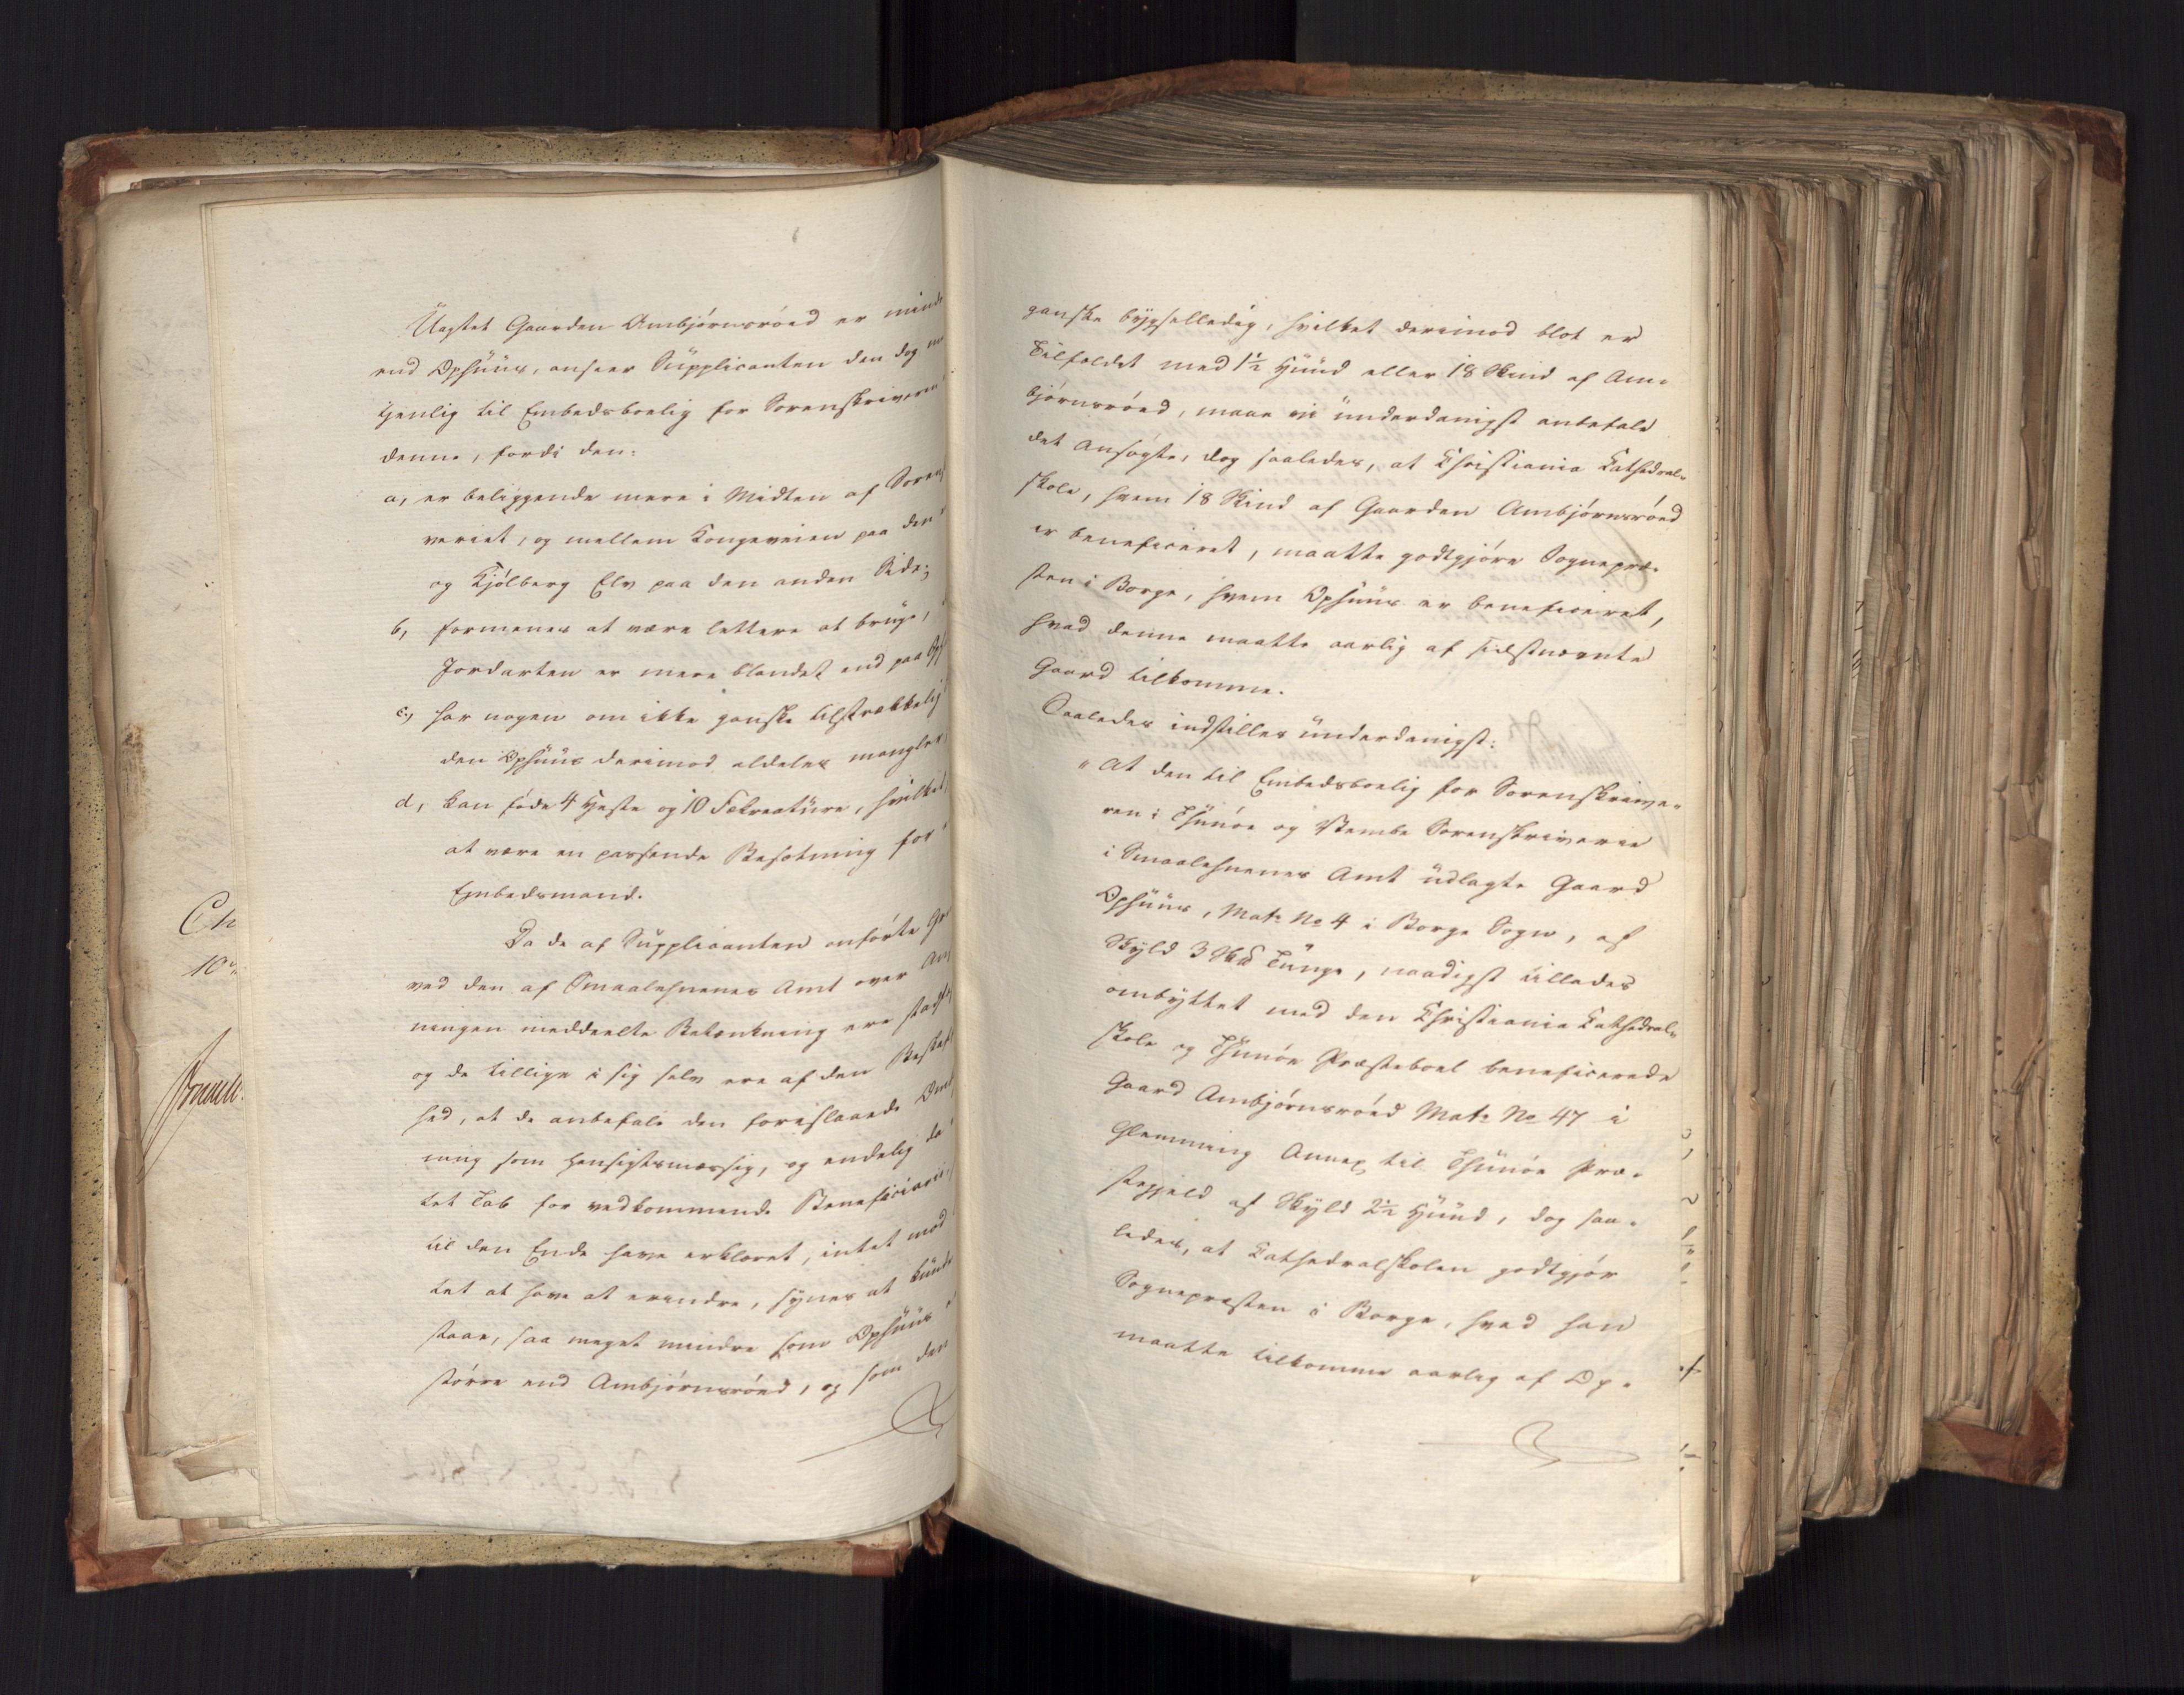 Uagtet Gaarden Ambjörnsröed er mind
end Ophuus, anseer Supplicanten den dog
tjenlig til Embedsboelig for Sorenskriveren
denne, fordi den:
a, er beliggende mere i Midten af Soren
veriet, og mellem Kongeveien paa den
og Kjölberg Elv paa den anden Side;
b, formenes at være lettere at bruge,
Jordarten er mere blandet end paa Op
c, har nogen om ikke ganske tilstrækkelig
den Ophuus derimod aldeles mangler
d, kan föde 4 Heste og 10 Fækreature, hvilket
at være en passende Besætning for
Embedsmand.
Da de af Supplicanten anförte Gr
ved den af Smaalehnenes Amt over An
ningen meddeelte Betænkning ere stadfæ
og de tillige i sig selv ere af den Beskaf
hed, at de anbefale den foreslaaede Omb
ning som hensigtsmæssig, og endelig da
tet Tab for vedkommende Beneficiarii,
til den Ende have erklæret, intet mod
tet at have at erindre, synes at kunde
staae, saa meget mindre som Ophuus
större end Ambjörnsröed, og som den
Ch
10
ganske bygselledig, hvilket derimod blot er
Tilfældet med 1½ Huud eller 18 Skind af Am-
björnsröed, maae vi underdanigst anbefale
det Ansögte, dog saaledes, at Christiania Cathedral-
skole, hvem 18 Skind af Gaarden Ambjörnsröed
er beneficeret, maatte godtgjöre Sognepræ-
sten i Borge, hvem Ophuus er beneficeret,
hvad denne maatte aarlig af sidstnævnte
Gaard tilkomme.
Saaledes indstilles underdanigst:
"At den til Embedsboelig for Sorenskrive-
ren i Thunöe og Vembe Sorenskriverie
i Smaalehnenes Amt udlagte Gaard
Ophuus, Matr No 4 i Borge Sogn, af
Skyld 3 Skd Tunge, naadigst tillades
ombyttet med den Christiania Cathedral-
skole og Thunöe Præsteboel beneficerede
Gaard Ambjörnsröed Matr No 47 i
Glemming Annex til Thunöe Præ-
stegjeld af Skyld 2½ Huud, dog saa-
ledes, at Cathedralskolen godtgjör
Sognepræsten i Borge, hvad han
maatte tilkomme aarlig af Op-